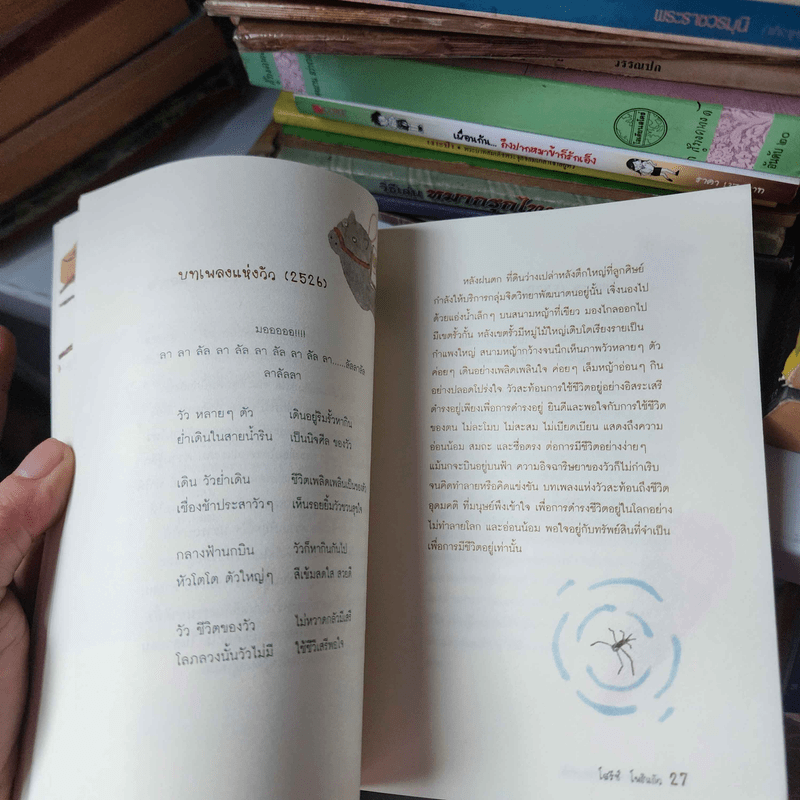 พระราชวรมุนี
วรรณปก
เพื่อนกัน... ถึงปากหมาข้าก็รักเอ็ง
อันดับ ๒๐
วิธีเล่น หมากรุกไทย
บทเพลงแห่งวัว (2526)
มอออออ!!!!
ลา ลา ลัล ลา ลัล ลา ลัล ลา ลัล ลา.....ลัลลาลัล
ลาลัลลา
วัว หลายๆ ตัว เดินอยู่ริมรั้วหากิน
ย่ำเดินในสายน้ำริน เป็นนิจศีล ของวัว
เดิน วัวย่ำเดิน ชีวิตเพลิดเพลินเป็นของตัว
เชื่องช้าประสาวัวๆ เห็นรอยยิ้มวัวชวนสุขใจ
กลางฟ้านกบิน วัวก็หากินกันไป
หัวโตโต ตัวใหญ่ๆ สีเข้มสดใส สวยดี
วัว ชีวิตของวัว ไม่หวาดกลัวมีเสรี
โลภลวงนั้นวัวไม่มี ใช้ชีวีเสรีพอใจ
หลังฝนตก ที่ดินว่างเปล่าหลังตึกใหญ่ที่ลูกศิษย์
กำลังให้บริการกลุ่มจิตวิทยาพัฒนาตนอยู่นั้น เจิ่งนองไป
ด้วยแอ่งน้ำเล็กๆ บนสนามหญ้าที่เขียว มองไกลออกไป
มีเขตรั้วกั้น หลังเขตรั้วมีหมู่ไม้ใหญ่เติบโตเรียงรายเป็น
กำแพงใหญ่ สนามหญ้ากว้างจนนึกเห็นภาพวัวหลายๆ ตัว
ค่อยๆ เดินอย่างเพลิดเพลินใจ ค่อยๆ เล็มหญ้าอ่อนๆ กิน
อย่างปลอดโปร่งใจ วัวสะท้อนการใช้ชีวิตอยู่อย่างอิสระเสรี
ดำรงอยู่เพียงเพื่อการดำรงอยู่ ยินดีและพอใจกับการใช้ชีวิต
ของตน ไม่ละโมบ ไม่สะสม ไม่เบียดเบียน แสดงถึงความ
อ่อนน้อม สมถะ และซื่อตรง ต่อการมีชีวิตอย่างง่ายๆ
แม้นกจะบินอยู่บนฟ้า ความอิจฉาริษยาของวัวก็ไม่กำเริบ
จนคิดทำลายหรือคิดแข่งขัน บทเพลงแห่งวัวสะท้อนถึงชีวิต
อุดมคติ ที่มนุษย์พึงเข้าใจ เพื่อการดำรงชีวิตอยู่ในโลกอย่าง
ไม่ทำลายโลก และอ่อนน้อม พอใจอยู่กับทรัพย์สินที่จำเป็น
เพื่อการมีชีวิตอยู่เท่านั้น
โสรีช์ โพธิแก้ว 27